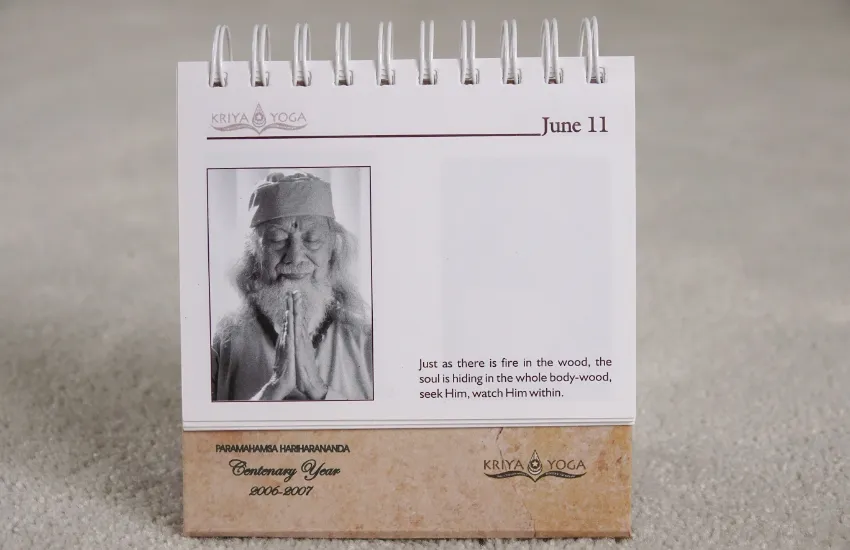 KRIYA YOGA
June 11
Just as there is fire in the wood, the
soul is hiding in the whole body-wood,
seek Him, watch Him within.
PARAMAHAMSA HARIHARANANDA
Centenary Year
2006-2007
KRIYA YOGA